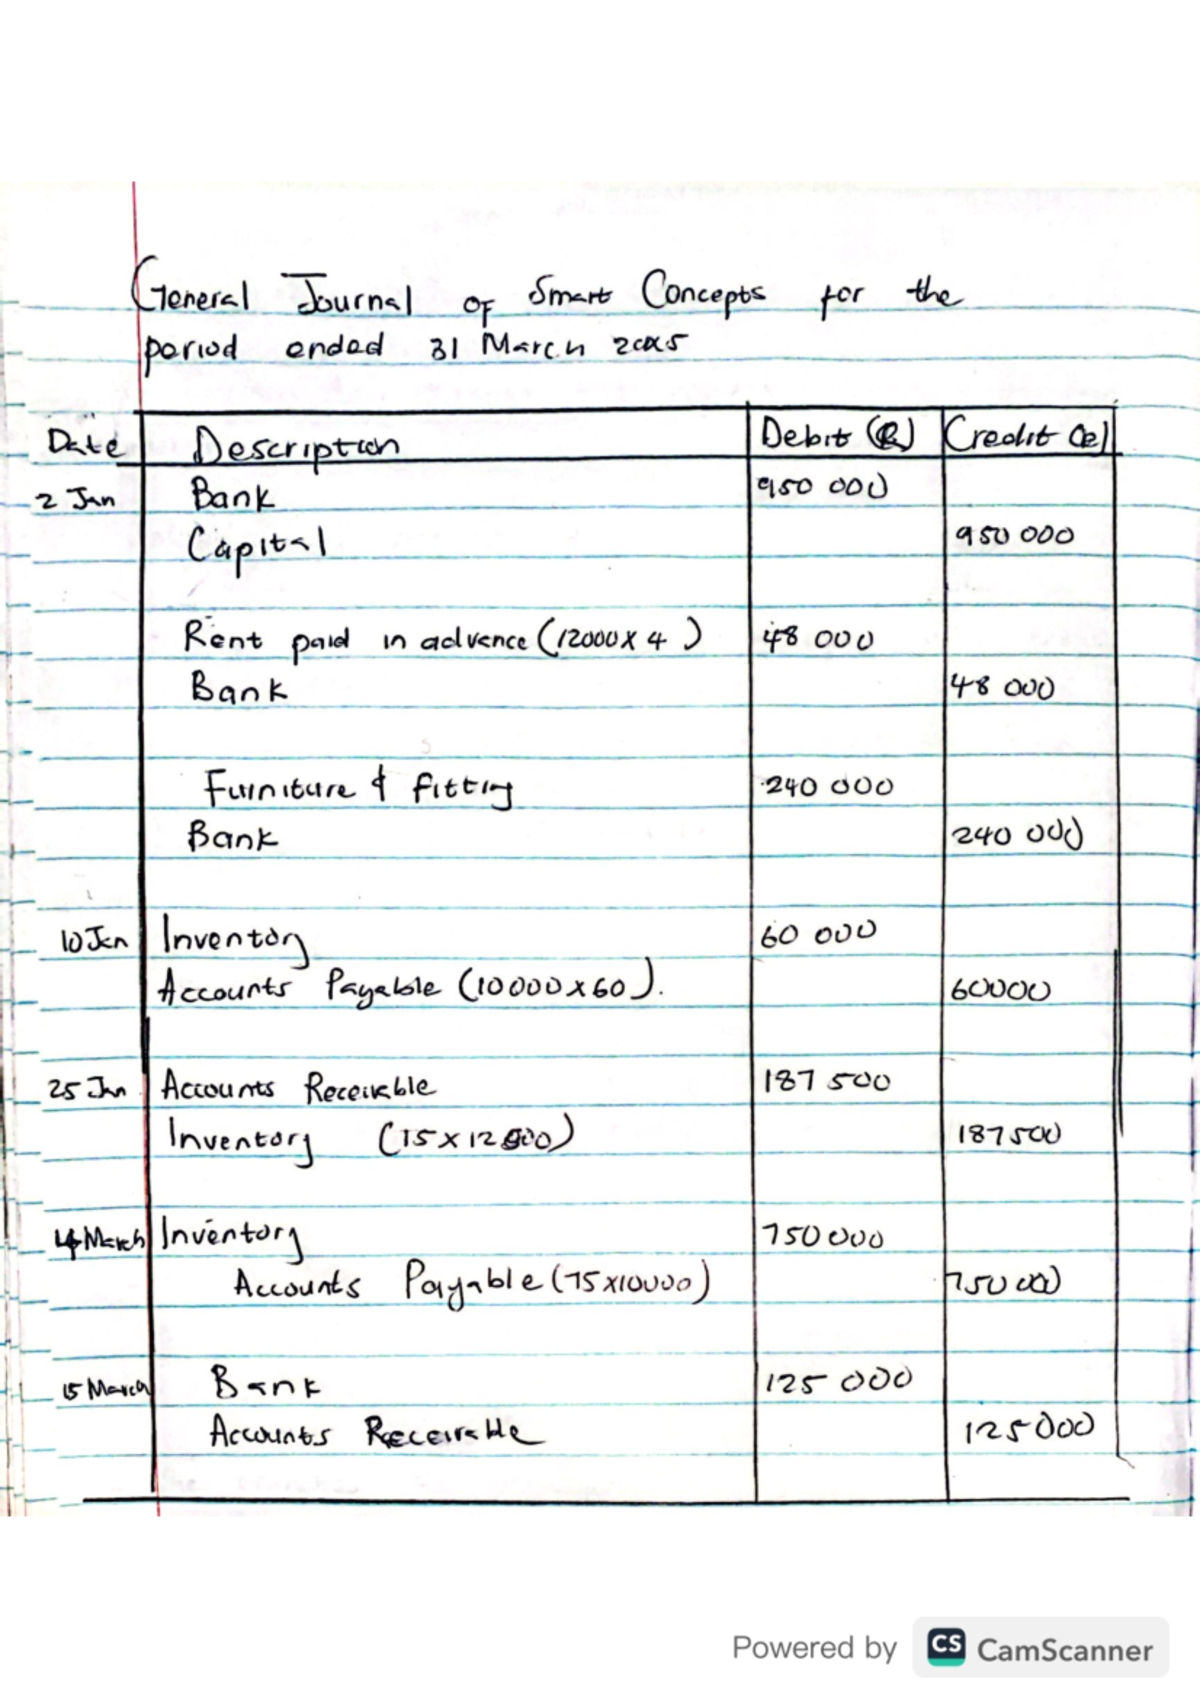 General Journal of Smart Concepts for the
period ended 31 March 2025
Date Description Debit (R) Credit (R)
2 Jan Bank 950 000
Capital 950 000
Rent paid in advance (12000 x 4 ) 48 000
Bank 48 000
Furniture & fitting 240 000
Bank 240 000
10 Jan Inventory 60 000
Accounts Payable (10000 x 60). 60000
25 Jan Accounts Receivable 187 500
Inventory (15 x 12500) 187500
4 March Inventory 750000
Accounts Payable (75 x 10000) 750 000
15 March Bank 125 000
Accounts Receivable 125000
Powered by CS CamScanner